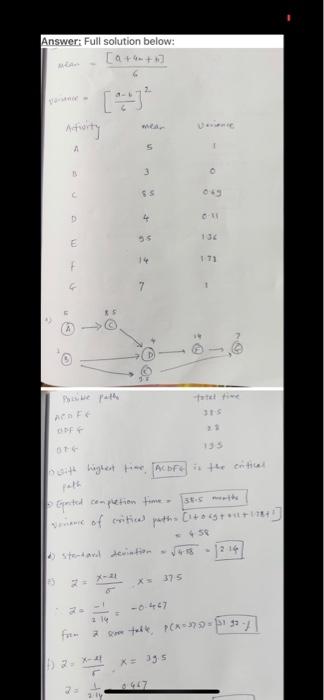 Answer: Full solution below:
mean = [a + 4m + b]
6
variance = [a-b / 6]²
Activity mean variance
A 5 1
B 3 0
C 8.5 0.69
D 4 0.11
E 9.5 1.36
F 14 1.78
G 7 1
5 8.5
A C
4 14 7
B D F G
E
9.5
Possible paths total time
ACDFG 38.5
BDFG 28
BEG 19.5
with highest time, ACDFG is the critical
path
Expected completion time = 38.5 months
variance of critical path = [1+0.69+0.11+1.78+1]
= 4.58
d) standard deviation = √4.58 = 2.14
e) z = x-μ / σ , x = 37.5
z = -1 / 2.14 = -0.467
from z score table, P(x=37.5) =
f) z = x-μ / σ x = 39.5
z = 1 / 2.14 0.467